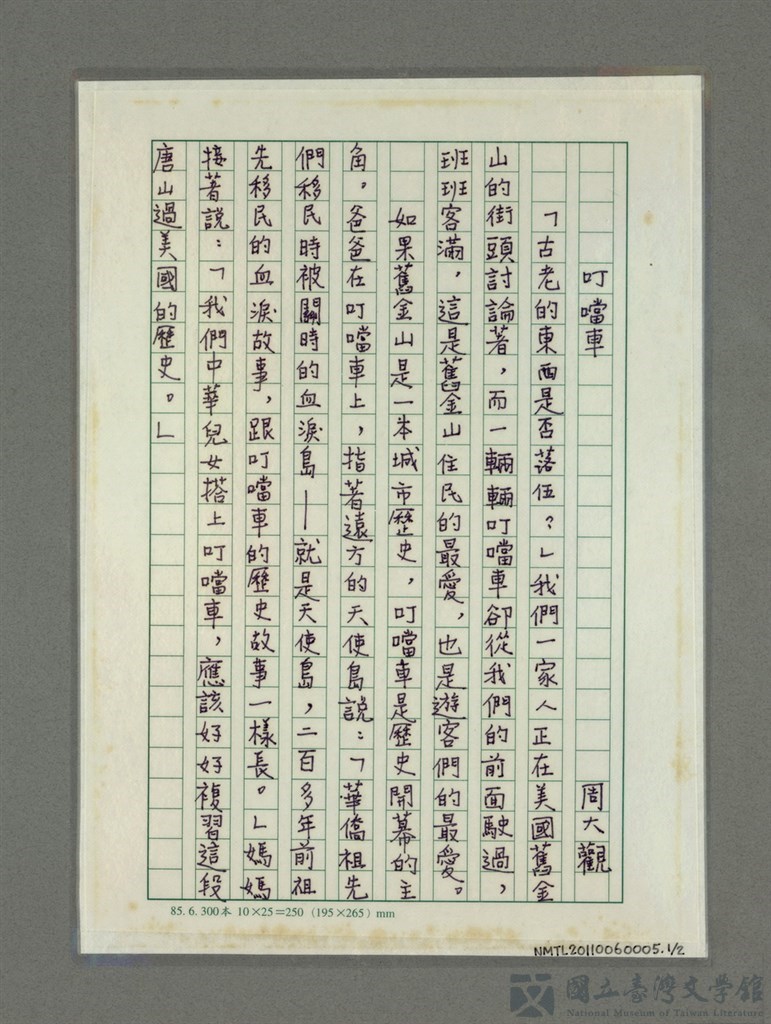 叮噹車　周大觀
「古老的東西是否落伍？」我們一家人正在美國舊金
山的街頭討論著，而一輛輛叮噹車卻從我們的前面駛過，
班班客滿，這是舊金山住民的最愛，也是遊客們的最愛。
如果舊金山是一本城市歷史，叮噹車是歷史開幕的主
角。爸爸在叮噹車上，指著遠方的天使島說：「華僑祖先
們移民時被關時的血淚島—就是天使島，二百多年前祖
先移民的血淚故事，跟叮噹車的歷史故事一樣長。」媽媽
接著說：「我們中華兒女搭上叮噹車，應該好好複習這段
唐山過美國的歷史。」
85. 6. 300本 10×25=250 (195×265) mm
NMTL20110060005.1/2
國立臺灣文學館
National Museum of Taiwan Literature